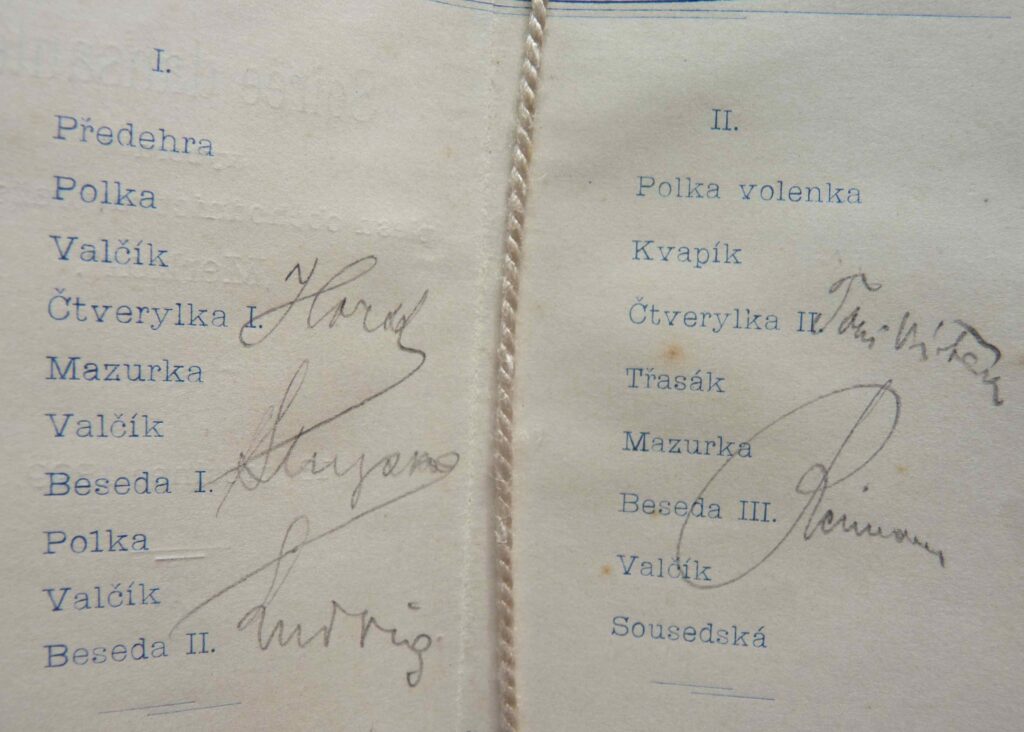 I.
Předehra
Polka
Valčík
Čtverylka I.
Mazurka
Valčík
Beseda I.
Polka
Valčík
Beseda II. Ludvig
II.
Polka volenka
Kvapík
Čtverylka II.
Třasák
Mazurka
Beseda III.
Valčík
Sousedská